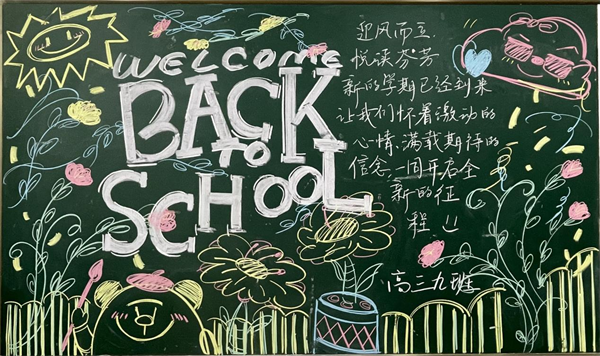 WELCOME
BACK
TO
SCHOOL
迎风而立
悦溪芬芳
新的学期已经到来
让我们怀着激动的
心情,满载期待的
信念,一同开启全
新的征
程
高三九班